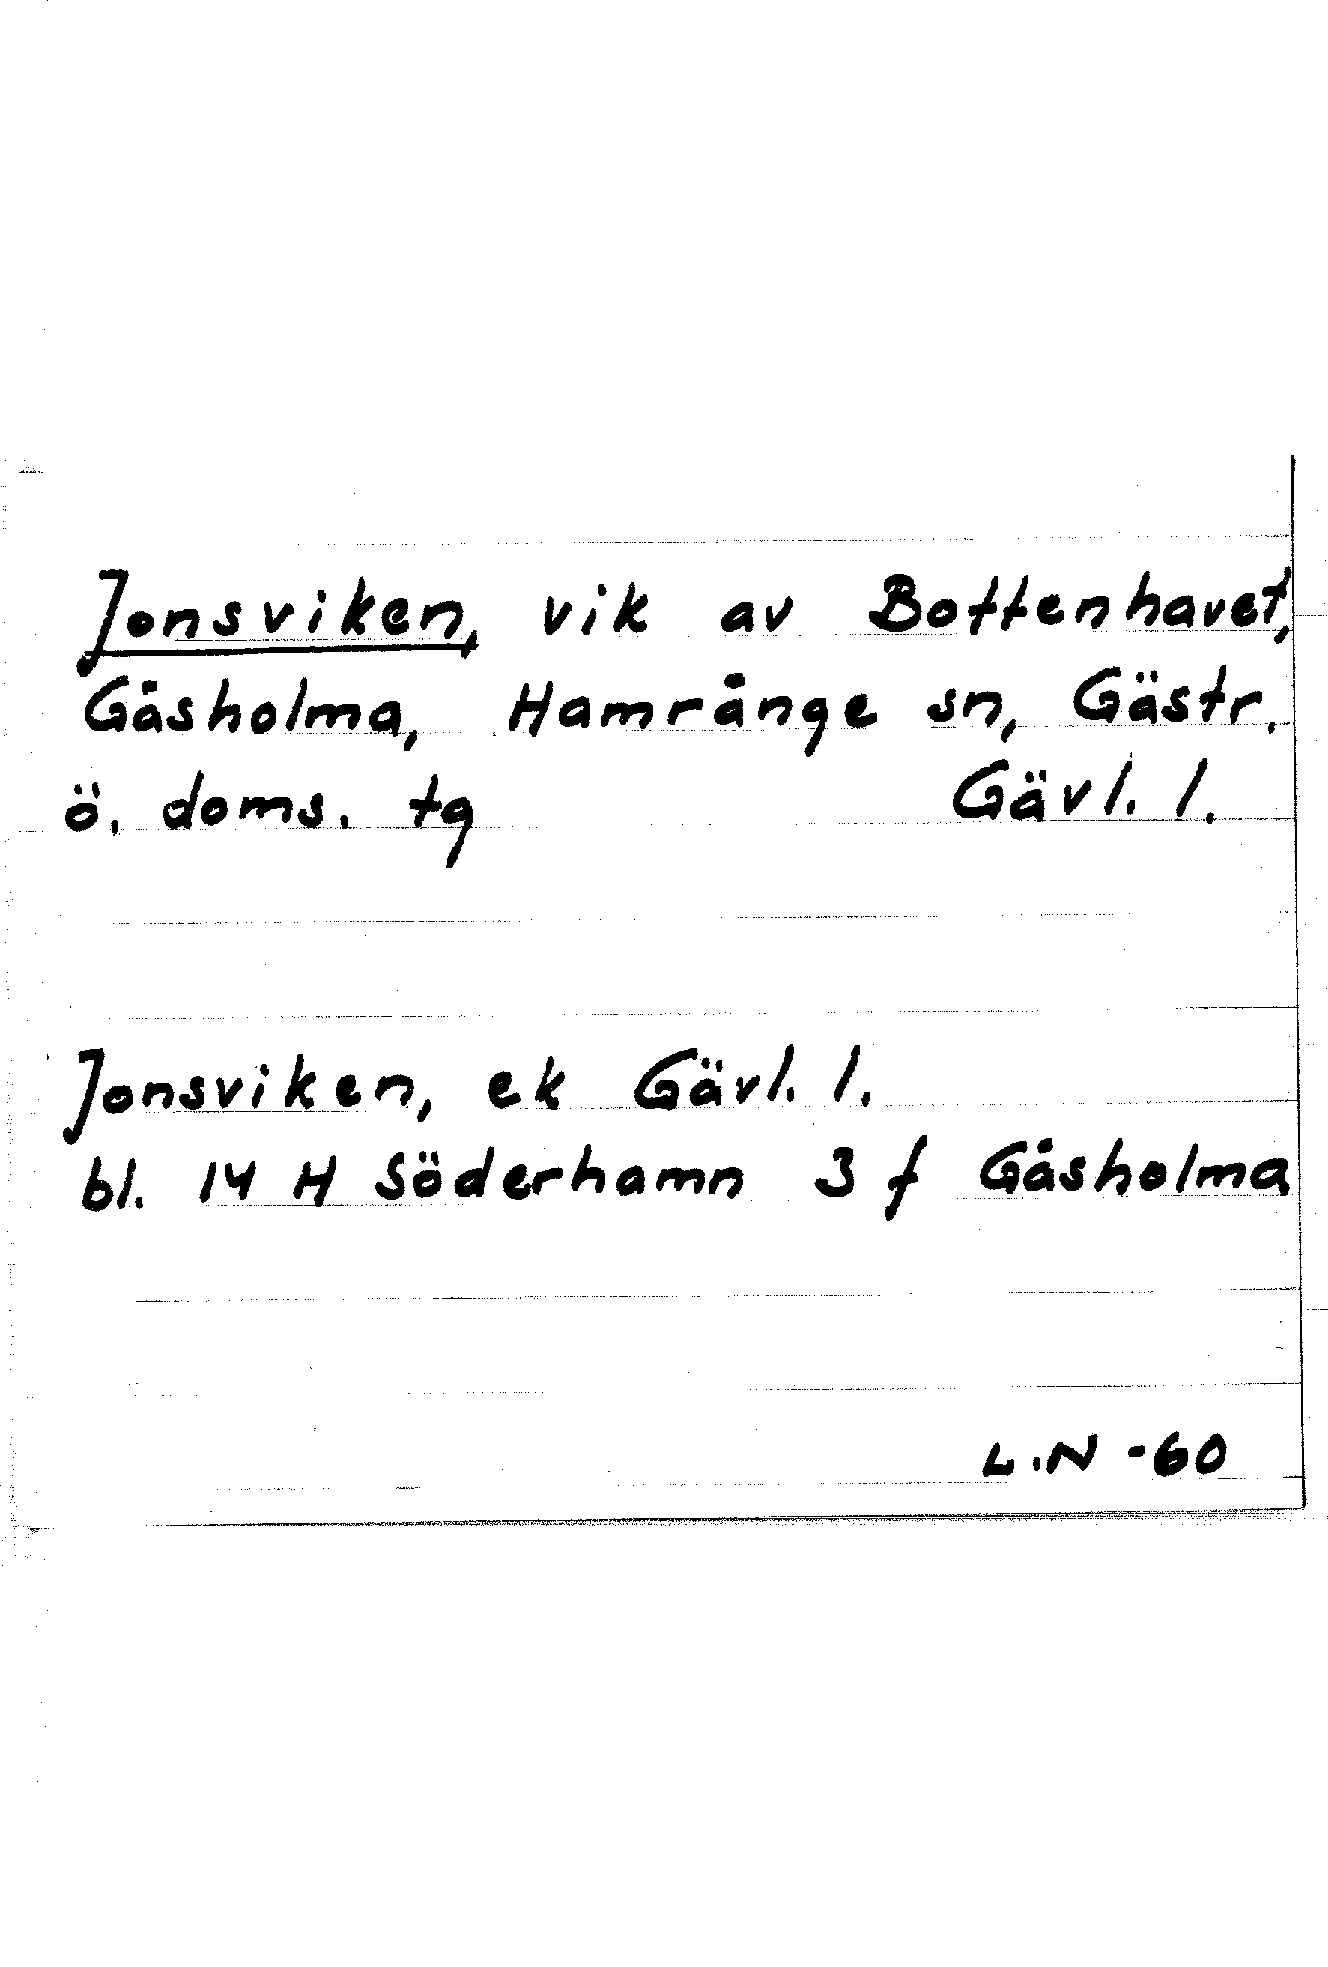 Jonsviken, vik av Bottenhavet,
Gåsholma, Hamrånge sn, Gästr.
ö. doms. tg Gävl. l.
Jonsviken, ek Gävl. l.
bl. 14 H Söderhamn 3 f Gåsholma
L.N -60